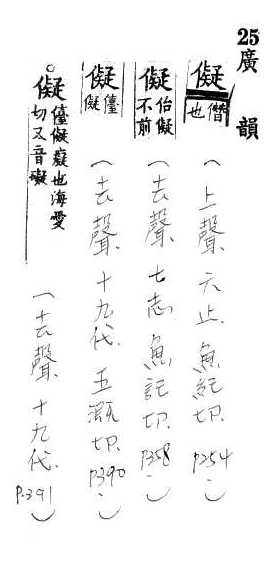 25廣韻
儗僭也(上聲、六止、魚紀切、P254)
儗佁儗不前(去聲、七志、魚記切、P358)
儗儓儗(去聲、十九代、五溉切、P390)
儗儓儗癡也海愛切又音礙(去聲、十九代、P.391)